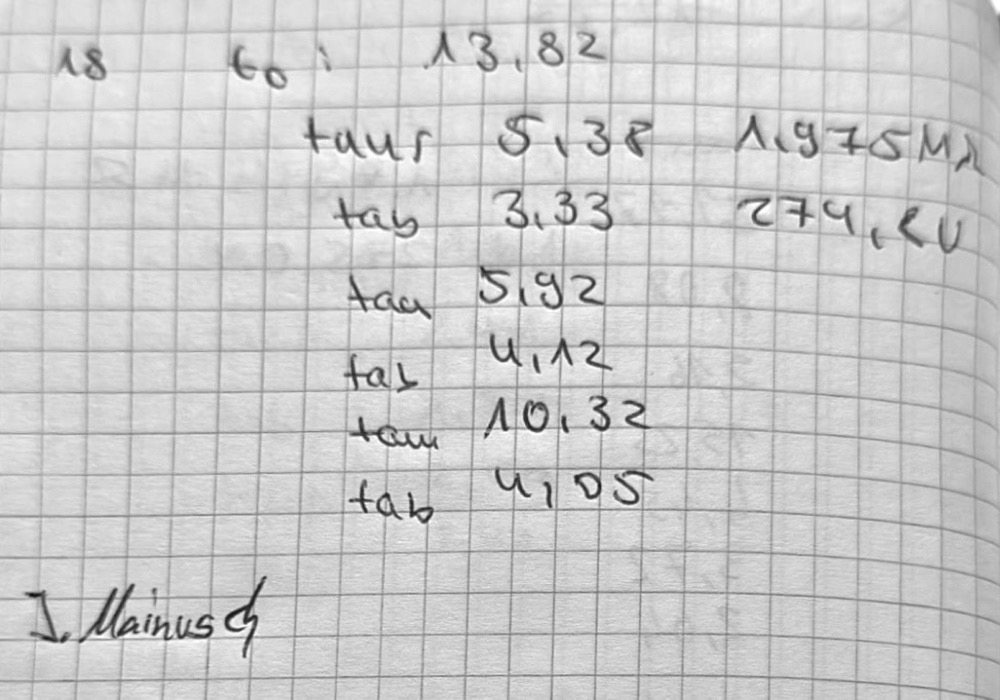 18 t₀: 13,82
tauf 5,38 1,975MΩ
tab 3,33 274,2V
tau 5,92
tab 4,12
tau 10,32
tab 4,05
J. Mainusch